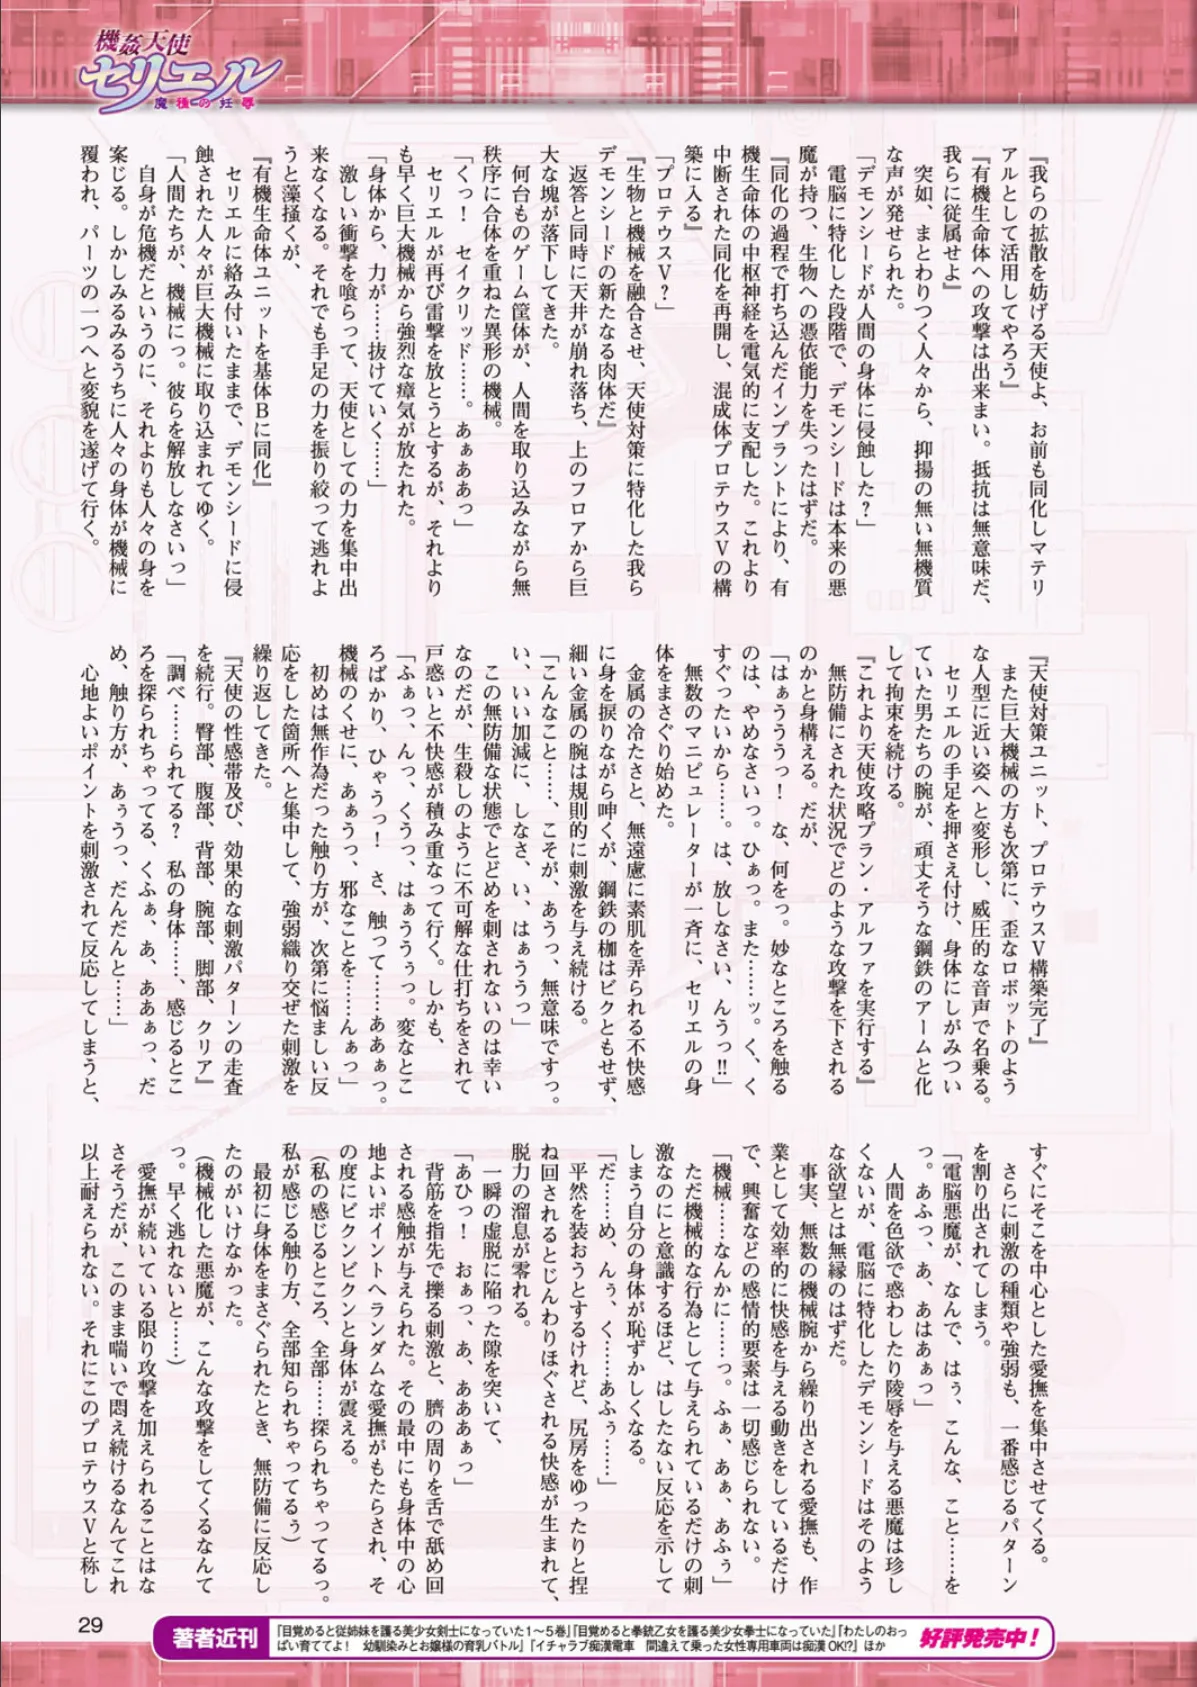 機姦天使
セリエル
魔種の妊辱
『我らの拡散を妨げる天使よ、お前も同化しマテリ
アルとして活用してやろう』
『有機生命体への攻撃は出来まい。抵抗は無意味だ、
我らに従属せよ』
突如、まとわりつく人々から、抑揚の無い無機質
な声が発せられた。
「デモンシードが人間の身体に侵蝕した?」
電脳に特化した段階で、デモンシードは本来の悪
魔が持つ、生物への憑依能力を失ったはずだ。
『同化の過程で打ち込んだインプラントにより、有
機生命体の中枢神経を電気的に支配した。これより
中断された同化を再開し、混成体プロテウスVの構
築に入る』
「プロテウスV?」
『生物と機械を融合させ、天使対策に特化した我ら
デモンシードの新たなる肉体だ』
返答と同時に天井が崩れ落ち、上のフロアから巨
大な塊が落下してきた。
何台ものゲーム筐体が、人間を取り込みながら無
秩序に合体を重ねた異形の機械。
「くっ! セイクリッド……。あぁああっ」
セリエルが再び雷撃を放とうとするが、それより
も早く巨大機械から強烈な瘴気が放たれた。
「身体から、力が……抜けていく……」
激しい衝撃を喰らって、天使としての力を集中出
来なくなる。それでも手足の力を振り絞って逃れよ
うと藻掻くが、
『有機生命体ユニットを基体Bに同化』
セリエルに絡み付いたままで、デモンシードに侵
蝕された人々が巨大機械に取り込まれてゆく。
「人間たちが、機械にっ。彼らを解放しなさいっ」
自身が危機だというのに、それよりも人々の身を
案じる。しかしみるみるうちに人々の身体が機械に
覆われ、パーツの一つへと変貌を遂げて行く。
『天使対策ユニット、プロテウスV構築完了』
また巨大機械の方も次第に、歪なロボットのよう
な人型に近い姿へと変形し、威圧的な音声で名乗る。
セリエルの手足を押さえ付け、身体にしがみつい
ていた男たちの腕が、頑丈そうな鋼鉄のアームと化
して拘束を続ける。
『これより天使攻略プラン・アルファを実行する』
無防備にされた状況でどのような攻撃を下される
のかと身構える。だが、
「はぁううっ! な、何をっ。妙なところを触る
のは、やめなさいっ。ひぁっ。また……ッ。く、く
すぐったいから……。は、放しなさい、んうっ!!」
無数のマニピュレーターが一斉に、セリエルの身
体をまさぐり始めた。
金属の冷たさと、無遠慮に素肌を弄られる不快感
に身を捩りながら呻くが、鋼鉄の枷はビクともせず、
細い金属の腕は規則的に刺激を与え続ける。
「こんなこと……、こそが、あうっ、無意味ですっ。
い、いい加減に、しなさ、い、はぁううっ」
この無防備な状態でとどめを刺されないのは幸い
なのだが、生殺しのように不可解な仕打ちをされて
戸惑いと不快感が積み重なって行く。しかも、
「ふぁっ、んっ、くうっ、はぁううぅっ。変なとこ
ろばかり、ひゃうっ! さ、触って……ああぁっ。
機械のくせに、あぁうっ、邪なことを……んぁっ」
初めは無作為だった触り方が、次第に悩ましい反
応をした箇所へと集中して、強弱織り交ぜた刺激を
繰り返してきた。
『天使の性感帯及び、効果的な刺激パターンの走査
を続行。臀部、腹部、背部、腕部、脚部、クリア』
「調べ……られてる? 私の身体……、感じるとこ
ろを探られちゃってる、くふぁ、あ、ああぁっ、だ
め、触り方が、あぅうっ、だんだんと……」
心地よいポイントを刺激されて反応してしまうと、
すぐにそこを中心とした愛撫を集中させてくる。
さらに刺激の種類や強弱も、一番感じるパターン
を割り出されてしまう。
「電脳悪魔が、なんで、はぅ、こんな、こと……を
っ。あふっ、あ、あはあぁっ」
人間を色欲で惑わしたり陵辱を与える悪魔は珍し
くないが、電脳に特化したデモンシードはそのよう
な欲望とは無縁のはずだ。
事実、無数の機械腕から繰り出される愛撫も、作
業として効率的に快感を与える動きをしているだけ
で、興奮などの感情的要素は一切感じられない。
「機械……なんかに……っ。ふぁ、あぁ、あふぅ」
ただ機械的な行為として与えられているだけの刺
激なのにと意識するほど、はしたない反応を示して
しまう自分の身体が恥ずかしくなる。
「だ……め、んぅ、く……あふぅ……」
平然を装おうとするけれど、尻房をゆったりと捏
ね回されるとじんわりほぐされる快感が生まれて、
脱力の溜息が零れる。
一瞬の虚脱に陥った隙を突いて、
「あひっ! おぁっ、あ、あああぁっ」
背筋を指先で擽る刺激と、臍の周りを舌で舐め回
される感触が与えられた。その最中にも身体中の心
地よいポイントへランダムな愛撫がもたらされ、そ
の度にビクンビクンと身体が震える。
(私の感じるところ、全部……探られちゃってるっ。
私が感じる触り方、全部知られちゃってるぅ)
最初に身体をまさぐられたとき、無防備に反応し
たのがいけなかった。
(機械化した悪魔が、こんな攻撃をしてくるなんて
っ。早く逃れないと……)
愛撫が続いている限り攻撃を加えられることはな
さそうだが、このまま喘いで悶え続けるなんてこれ
以上耐えられない。それにこのプロテウスVと称し
29
著者近刊
『目覚めると従姉妹を護る美少女剣士になっていた1〜5巻』『目覚めると拳銃乙女を護る美少女拳士になっていた』『わたしのおっ
ぱい育ててよ! 幼馴染みとお嬢様の育乳バトル』『イチャラブ痴漢電車 間違えて乗った女性専用車両は痴漢OK!?』ほか
好評発売中!